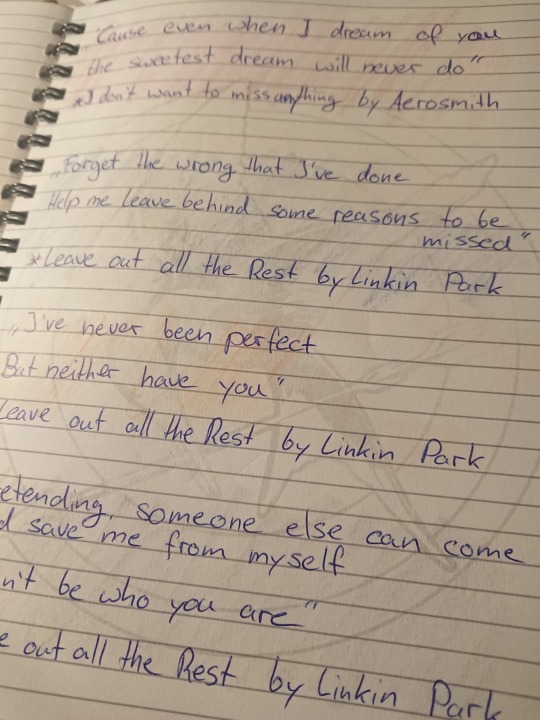 „Cause even when I dream of you
the sweetest dream will never do"
*I don't want to miss anything by Aerosmith
„Forget the wrong that I've done
Help me leave behind some reasons to be
missed"
*Leave out all the Rest by Linkin Park
„I've never been perfect
But neither have you"
Leave out all the Rest by Linkin Park
etending, someone else can come
d save me from myself
n't be who you are"
e out all the Rest by Linkin Park